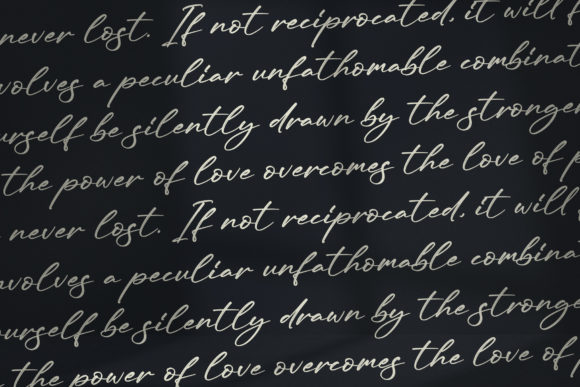 never lost. If not reciprocated, it will
volves a peculiar unfathomable combinat
urself be silently drawn by the stronger
the power of love overcomes the love of
never lost. If not reciprocated, it will
nvolves a peculiar unfathomable combina
ourself be silently drawn by the stronge
the power of love overcomes the love of